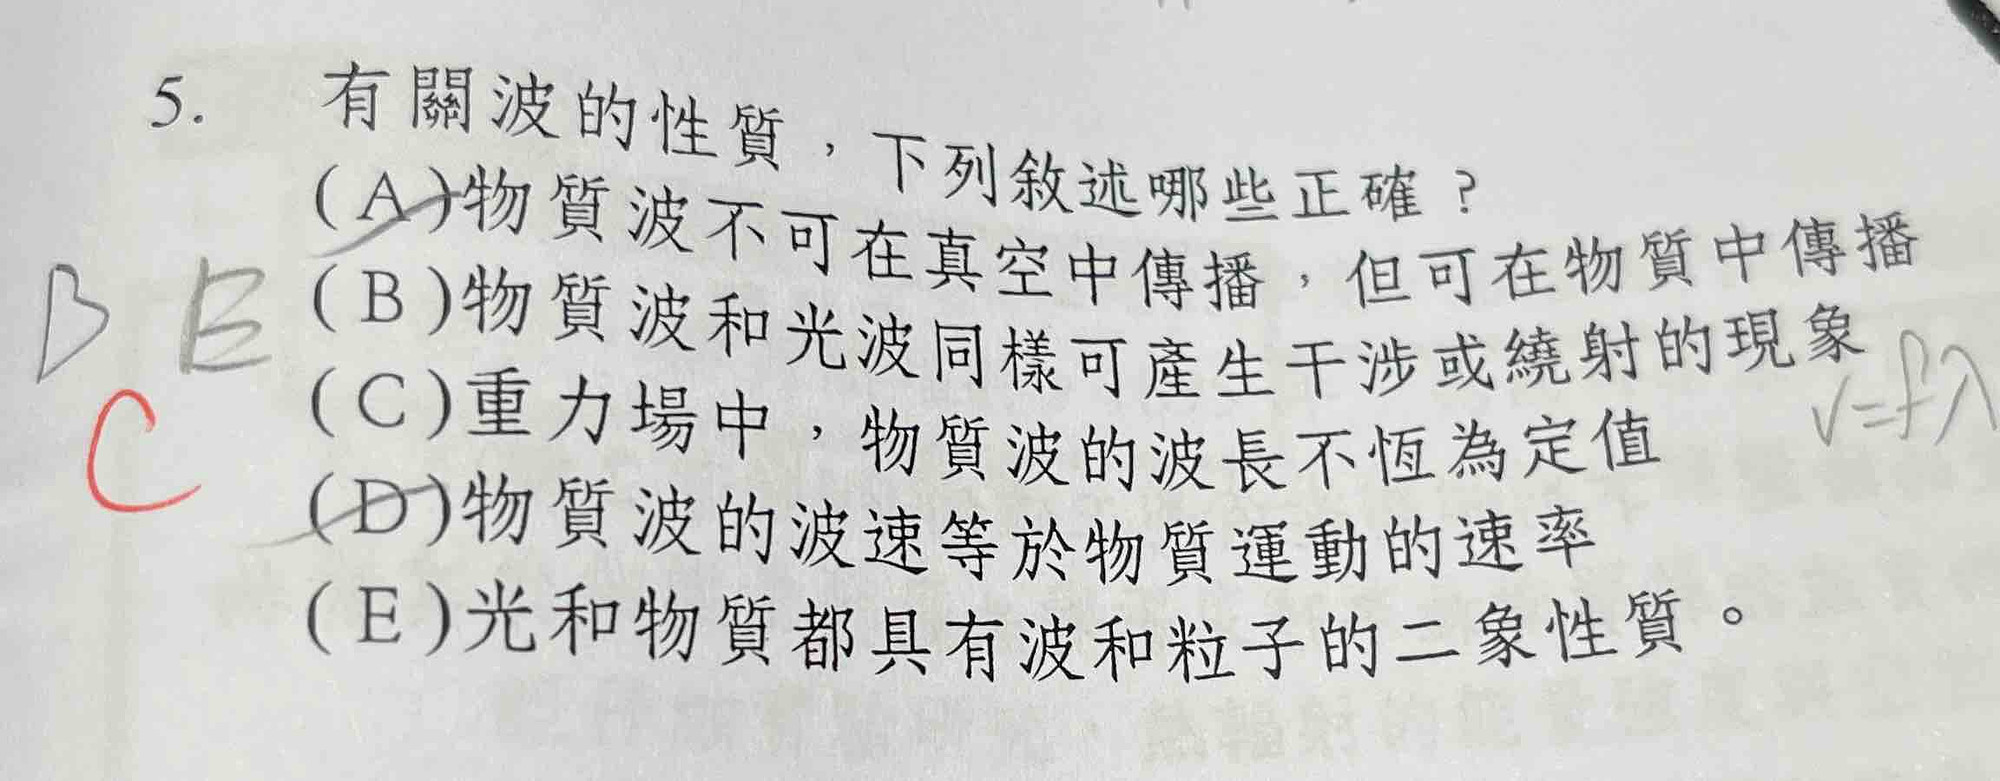 5. 有關波的性質，下列敘述哪些正確？
(A)物質波不可在真空中傳播，但可在物質中傳播
B E
(B)物質波和光波同樣可產生干涉或繞射的現象
v=fλ
(C)重力場中，物質波的波長不恆為定值
C
(D)物質波的波速等於物質運動的速率
(E)光和物質都具有波和粒子的二象性質。